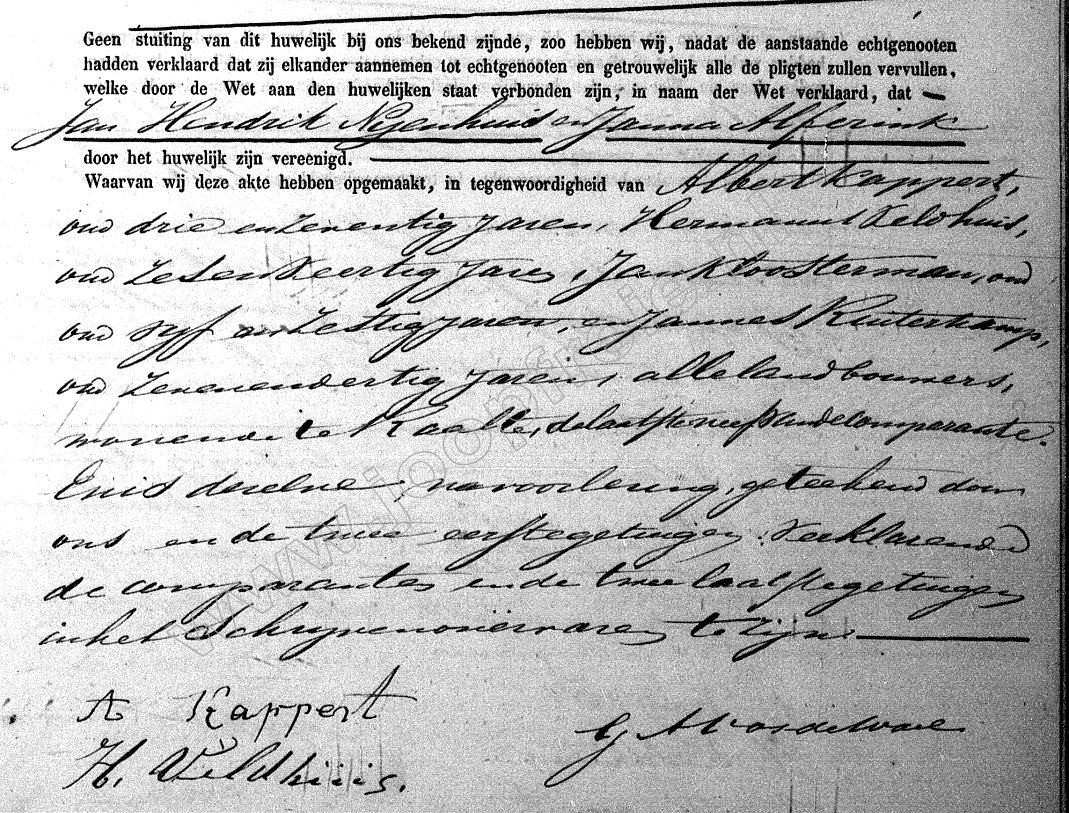 Geen stuiting van dit huwelijk bij ons bekend zijnde, zoo hebben wij, nadat de aanstaande echtgenooten
hadden verklaard dat zij elkander aannemen tot echtgenooten en getrouwelijk alle de pligten zullen vervullen,
welke door de Wet aan den huwelijken staat verbonden zijn, in naam der Wet verklaard, dat
Jan Hendrik Nijenhuis en Janna Alferink
door het huwelijk zijn vereenigd.
Waarvan wij deze akte hebben opgemaakt, in tegenwoordigheid van Albert Kappert,
oud drie en zeventig jaren, Hermannus Veldhuis,
oud zes en veertig jaren, Jan Kloosterman, oud
oud vijf en zestig jaren, en Jannes Kuiterkamp,
oud zevenendertig jaren, alle landbouwers,
wonende te Raalte, de laatste neef van de comparante.
En is dezelve, na voorlezing, geteekend door
ons en de twee eerste getuigen, verklarende
de comparanten en de twee laatste getuigen
in het schrijven onervaren te zijn.
A Kappert
H. Veldhuis.
G
www.joopfrie